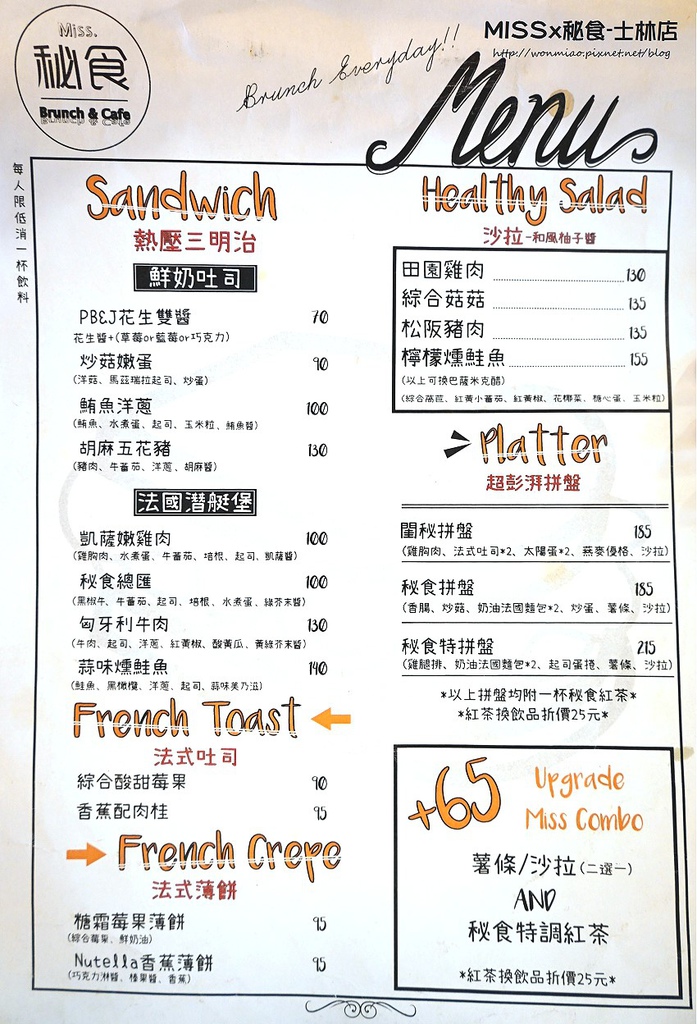 Miss.
秘食
Brunch & Cafe
Brunch Everyday!!
MISSx秘食-士林店
http://wonmiao.pixnet.net/blog
Menu
每人限低消一杯飲料
Sandwich
熱壓三明治
鮮奶吐司
PB&J花生雙醬 70
花生醬+(草莓or藍莓or巧克力)
炒菇嫩蛋 90
(洋菇、馬茲瑞拉起司、炒蛋)
鮪魚洋蔥 100
(鮪魚、水煮蛋、起司、玉米粒、鮪魚醬)
胡麻五花豬 130
(豬肉、牛蕃茄、洋蔥、胡麻醬)
法國潛艇堡
凱薩嫩雞肉 100
(雞胸肉、水煮蛋、牛蕃茄、培根、起司、凱薩醬)
秘食總匯 100
(黑椒牛、牛蕃茄、起司、培根、水煮蛋、綠芥末醬)
匈牙利牛肉 130
(牛肉、起司、洋蔥、紅黃椒、酸黃瓜、黃綠芥末醬)
蒜味燻鮭魚 140
(鮭魚、黑橄欖、洋蔥、起司、蒜味美乃滋)
French Toast
法式吐司
綜合酸甜莓果 90
香蕉配肉桂 95
French Crepe
法式薄餅
糖霜莓果薄餅 95
(綜合莓果、鮮奶油)
Nutella香蕉薄餅 95
(巧克力淋醬、榛果醬、香蕉)
Healthy Salad
沙拉-和風柚子醬
田園雞肉 130
綜合菇菇 135
松阪豬肉 135
檸檬燻鮭魚 155
(以上可換巴薩米克醋)
(綜合萵苣、紅黃小蕃茄、紅黃椒、花椰菜、糖心蛋、玉米粒)
Platter
超澎湃拼盤
闔秘拼盤 185
(雞胸肉、法式吐司*2、太陽蛋*2、燕麥優格、沙拉)
秘食拼盤 185
(香腸、炒菇、奶油法國麵包*2、炒蛋、薯條、沙拉)
秘食特拼盤 215
(雞腿排、奶油法國麵包*2、起司蛋捲、薯條、沙拉)
*以上拼盤均附一杯秘食紅茶*
*紅茶換飲品折價25元*
+65 Upgrade
Miss Combo
薯條/沙拉(二選一)
AND
秘食特調紅茶
*紅茶換飲品折價25元*